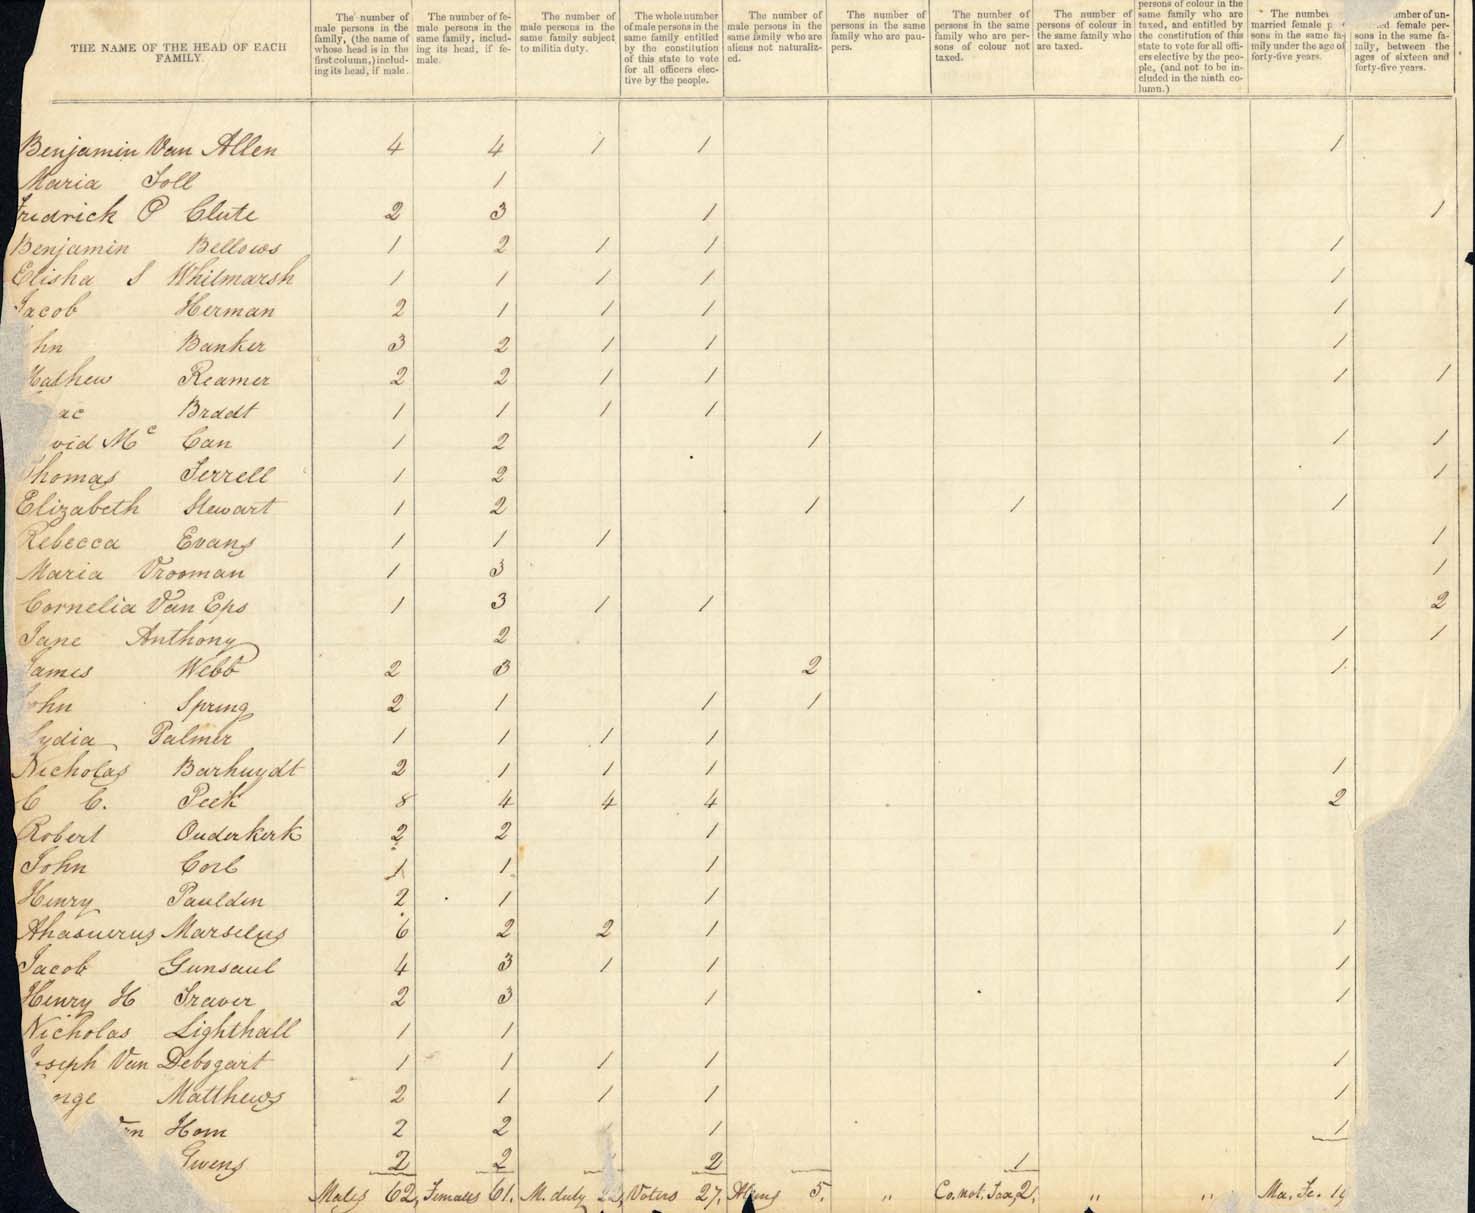 THE NAME OF THE HEAD OF EACH FAMILY.
The number of male persons in the family, (the name of whose head is in the first column,) including its head, if male.
The number of female persons in the same family, including its head, if female.
The number of male persons in the same family subject to militia duty.
The whole number of male persons in the same family entitled by the constitution of this state to vote for all officers elective by the people.
The number of male persons in the same family who are aliens not naturalized.
The number of persons in the same family who are paupers.
The number of persons in the same family who are persons of colour not taxed.
The number of persons of colour in the same family who are taxed.
persons of colour in the same family who are taxed, and entitled by the constitution of this state to vote for all officers elective by the people, (and not to be included in the ninth column.)
The number married female sons in the same family under the age of forty-five years.
umber of un- female persons in the same family, between the ages of sixteen and forty-five years.
Benjamin Van Allen 4 4 1 1 1
Maria Toll 1
Fredrick P Clute 2 3 1 1
Benjamin Bellows 1 2 1 1 1
Elisha S Whitmarsh 1 1 1 1 1
Jacob Herman 2 1 1 1 1
hn Banker 3 2 1 1 1
Mathew Reamer 2 2 1 1 1 1
ac Bradt 1 1 1 1
vid Mc Can 1 2 1 1 1
Thomas Terrell 1 2 1
Elizabeth Stewart 1 2 1 1 1
Rebecca Evans 1 1 1 1
Maria Vrooman 1 3 1
Cornelia Van Eps 1 3 1 1 2
Jane Anthony 2 1 1
James Webb 2 3 2 1
John Spring 2 1 1 1
Lydia Palmer 1 1 1 1
Nicholas Barhuydt 2 1 1 1 1
C C. Peek 8 4 4 4 2
Robert Ouderkerk 2 2 1
John Corl 1 1 1
Henry Paulden 2 1 1
Ahasuerus Marselus 6 2 2 1 1
Jacob Gunsaul 4 3 1 1 1
Henry H Traver 2 3 1 1
Nicholas Lighthall 1 1
oseph Van Debogart 1 1 1 1 1
rge Matthews 2 1 1 1 1
Van Horn 2 2 1 1
Givens 2 2 2 1
Males 62, Females 61. M. duty 22, Voters 27, Aliens 5. " Co. not. Tax, 2, " " Ma. Fe. 19